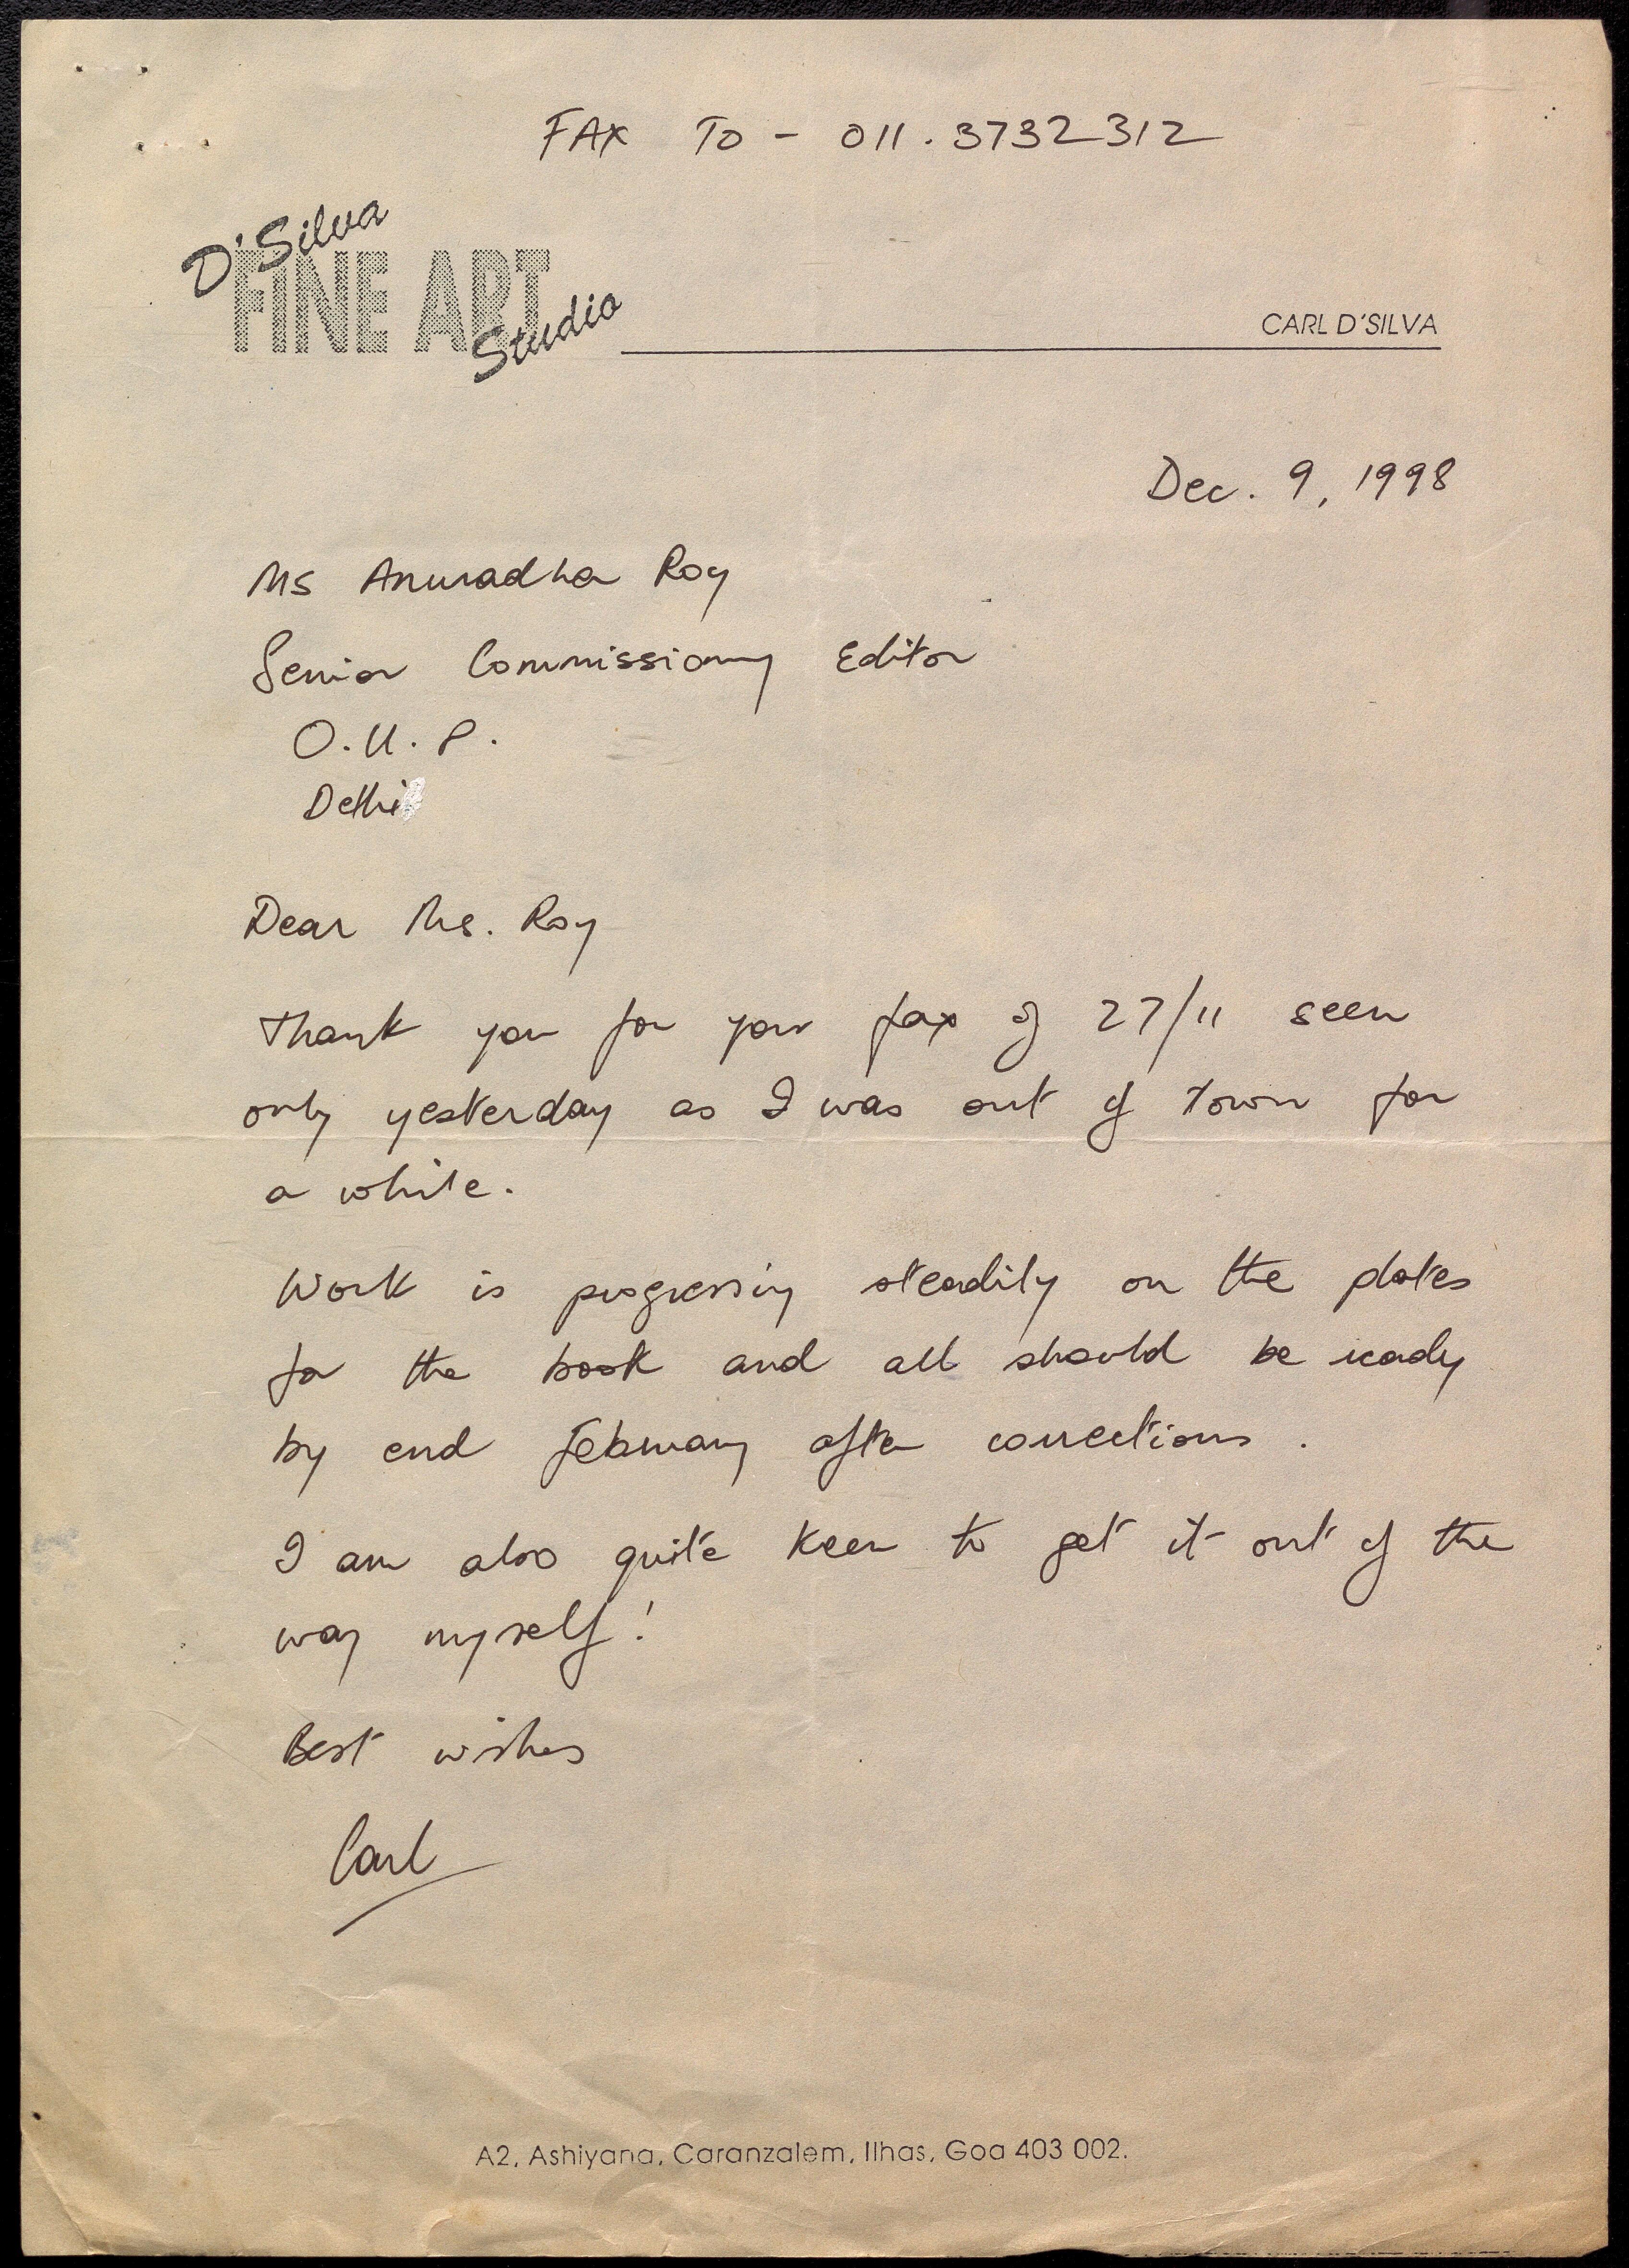 FAX TO - 011.3732312
D'Silva
FINE ART
Studio
CARL D'SILVA
Dec. 9, 1998
Ms Anuradha Roy
Senior Commissioning Editor
O.U.P.
Delhi
Dear Ms. Roy
Thank you for your fax of 27/11 seen
only yesterday as I was out of town for
a while.
Work is progressing steadily on the plates
for the book and all should be ready
by end February after corrections.
I am also quite keen to get it out of the
way myself!
Best wishes
Carl
A2, Ashiyana, Caranzalem, Ilhas, Goa 403 002.